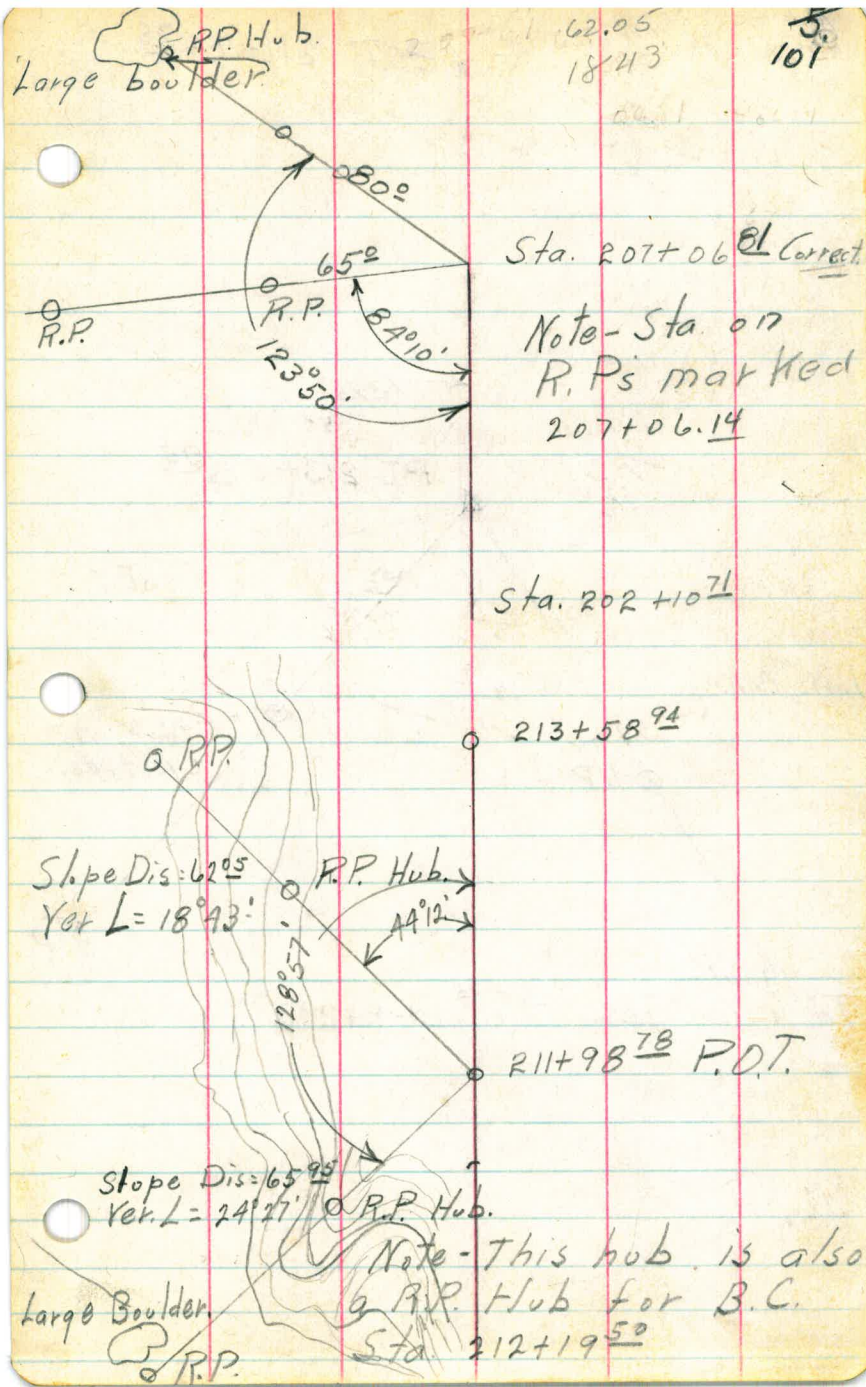 R.P. Hub.
Large boulder.
62.05
18 43
5.
101
80°
65°
R.P.
R.P.
84°10'
123°50'
Sta. 207+06 81 Correct.
Note - Sta. on
R.P.s marked
207+06.14
Sta. 202+10 71
213+58 94
R.P.
Slope Dis = 62 05
Ver L = 18°43'
R.P. Hub.
44°12'
128°57'
211+98 78 P.O.T.
Slope Dis = 65 95
Ver. L = 24°27'
R.P. Hub.
Note - This hub is also
a R.P. Hub for B.C.
Sta 212+19 50
Large Boulder.
R.P.